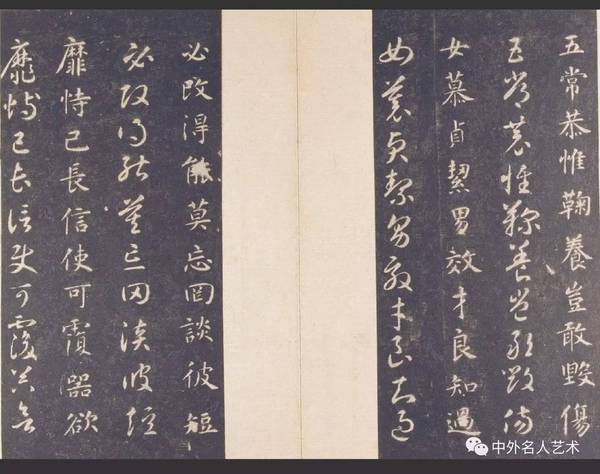 五常恭惟鞠養豈敢毀傷
五常恭惟鞠養豈敢毀傷
女慕貞絜男效才良知過
女慕貞絜男效才良知過
必改得能莫忘罔談彼短
必改得能莫忘罔談彼短
靡恃己長信使可覆器欲
靡恃己長信使可覆器欲
中外名人艺术